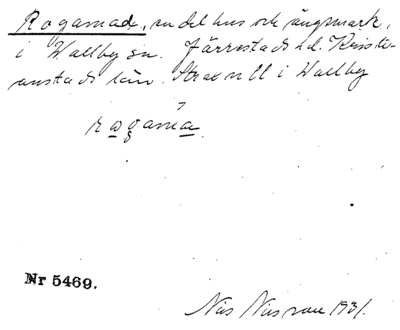 Rogamad, en del hus och ängsmark,
i Wallby sn. Järrestads hd. Kristi-
anstads län. Strax n ll i Wallby
rogama
Nr 5469.
Nils Nilsson 1931.